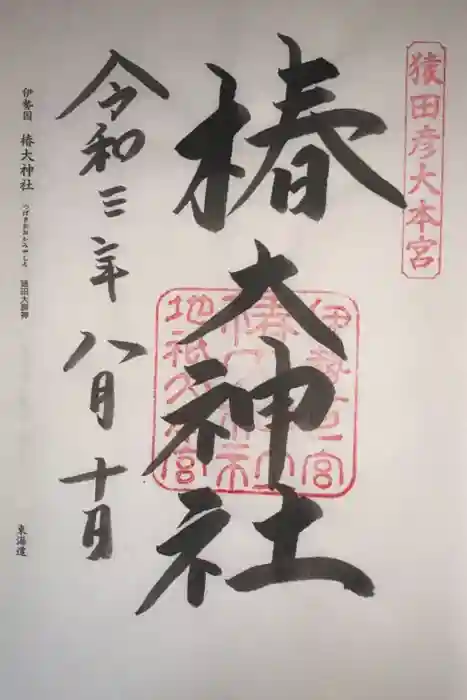 猿田彦大本宮
椿大神社
伊勢一宮
地祇大本宮
令和三年八月十日
伊勢国 椿大神社 つばきおおかみやしろ 猿田大神
東海道